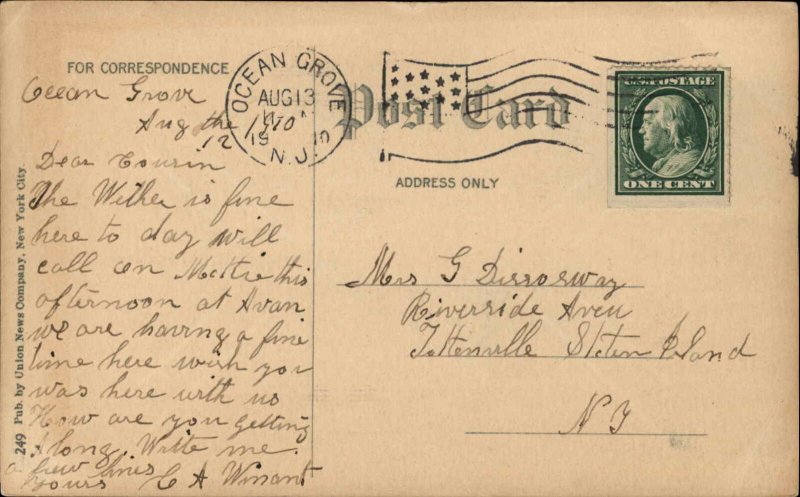 FOR CORRESPONDENCE
Post Card
ADDRESS ONLY
OCEAN GROVE
AUG 13
1910
N.J.
U.S. POSTAGE
ONE CENT
249 Pub. by Union News Company, New York City.
Ocean Grove
Aug the
12 1910
Dear Cousin
The Wither is fine
here to day will
call on Mattie this
afternoon at Avan
we are having a fine
time here wish you
was here with us
How are you getting
Along. Write me
a few lines
yours C A Winant
Mrs G Dissosway
Riverside Aven
Tottenville Staten Island
N Y